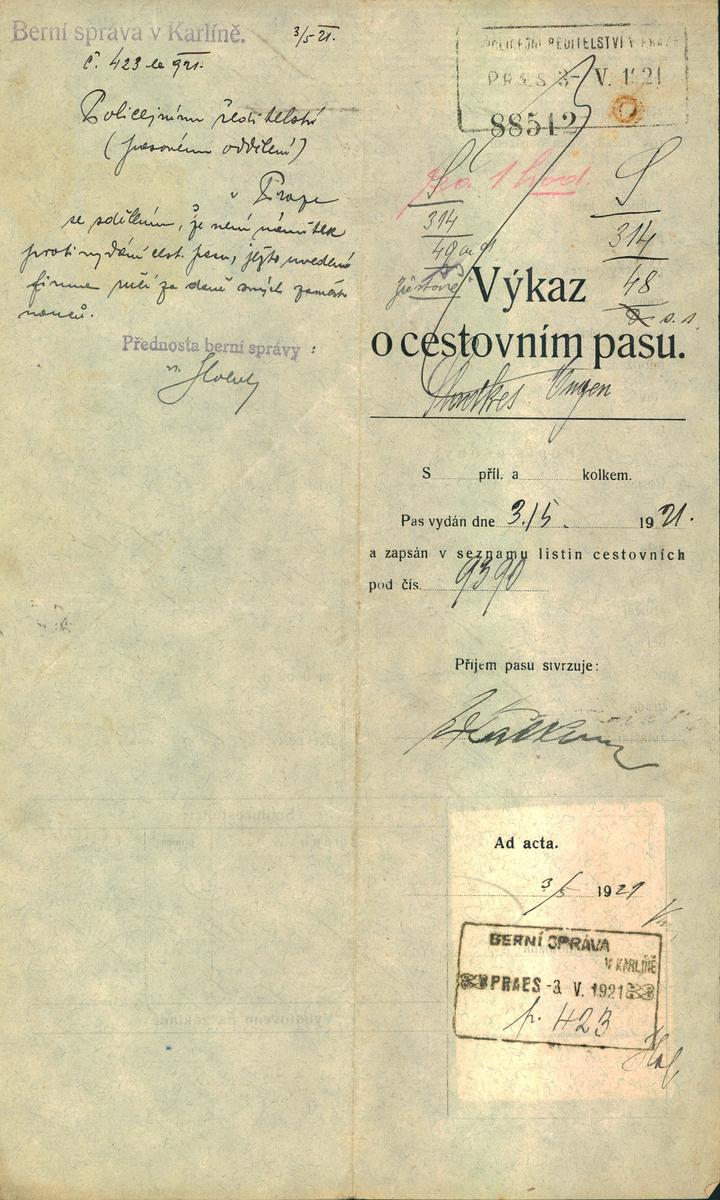 Berní správa v Karlíně. 3/5 21.
č. 423 ai 921.
Policejnímu ředitelství
(pasovému oddělení)
v Praze
se sdělením, že není námitek
proti vydání cest. pasu, jejžto uvedená
firma ručí za daně svých zaměst-
nanců.
Přednosta berní správy:
POLICEJNÍ ŘEDITELSTVÍ V PRAZE
PRAES 3- V. 1921
88512
1 hod.
S
314
S
314
48
Výkaz
o cestovním pasu.
S příl. a kolkem.
Pas vydán dne 3./5. 1921.
a zapsán v seznamu listin cestovních
pod čís. 9390
Příjem pasu stvrzuje:
Ad acta.
3/5 1921
BERNÍ SPRÁVA
V KARLÍNĚ
PRAES -3 V. 1921
p. 423